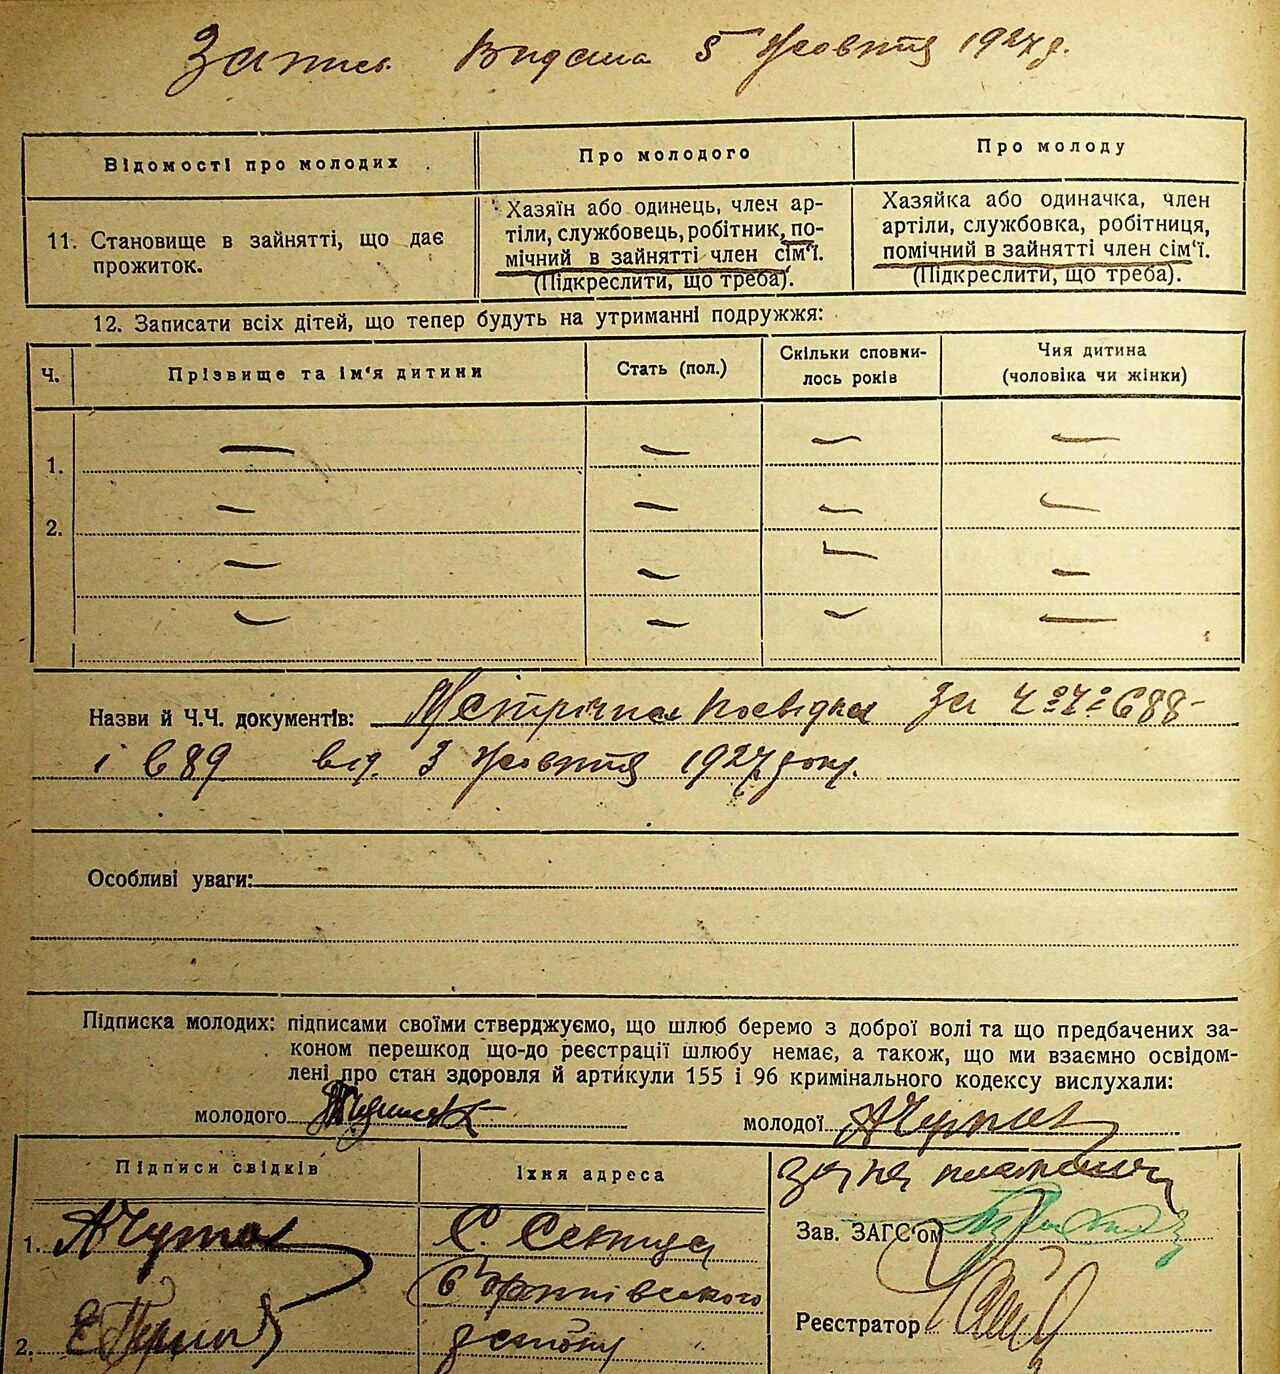 Запись Видана 5 Жовтня 1927 р.
Відомості про молодих
Про молодого
Про молоду
11. Становище в зайнятті, що дає
прожиток.
Хазяїн або одинець, член ар-
тіли, службовець, робітник, по-
мічний в зайнятті член сім'ї.
(Підкреслити, що треба).
Хазяйка або одиначка, член
артіли, службовка, робітниця,
помічний в зайнятті член сім'ї.
(Підкреслити, що треба).
12. Записати всіх дітей, що тепер будуть на утриманні подружжя:
Ч.
Прізвище та ім'я дитини
Стать (пол.)
Скільки сповни-
лось років
Чия дитина
(чоловіка чи жінки)
1.
2.
Назви й Ч.Ч. документів: Метрична посвідка за Ч.Ч. 688
і 689 від 3 Жовтня 1927 року.
Особливі уваги:
Підписка молодих: підписами своїми стверджуємо, що шлюб беремо з доброї волі та що предбачених за-
коном перешкод що-до реєстрації шлюбу немає, а також, що ми взаємно освідом-
лені про стан здоровля й артикули 155 і 96 кримінального кодексу вислухали:
молодого
молодої
Підписи свідків
Їхня адреса
1.
С.
Зав. ЗАГС'ом
2.
Реєстратор